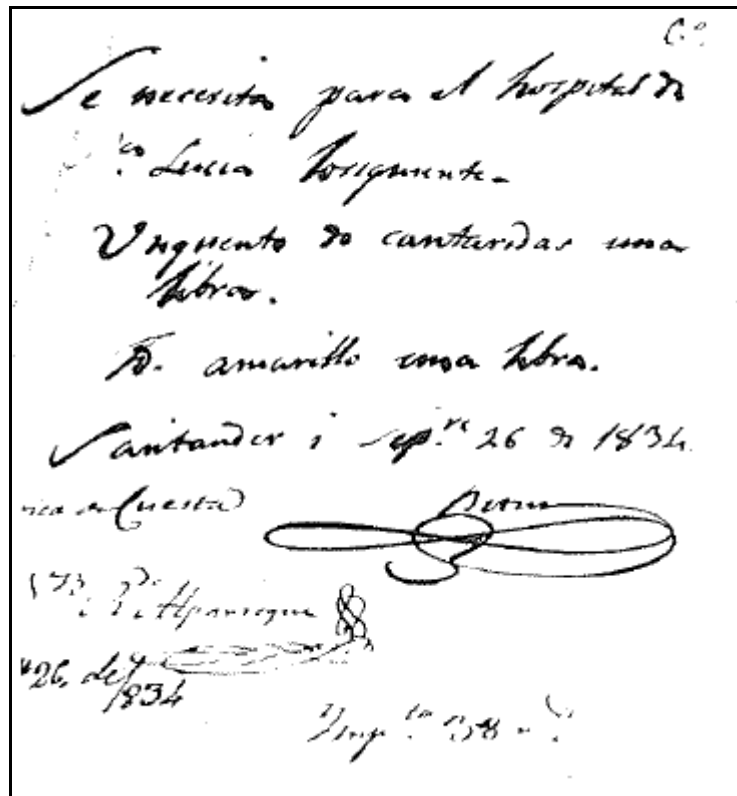 C.º
Se necesita para el hospital de
Lucia lo siguiente.
Unguento de cantaridas una
libra.
Yd. amarillo una libra.
Santander i Sep.re 26 de 1834.
Cuesta
26. de
1834
Imp.